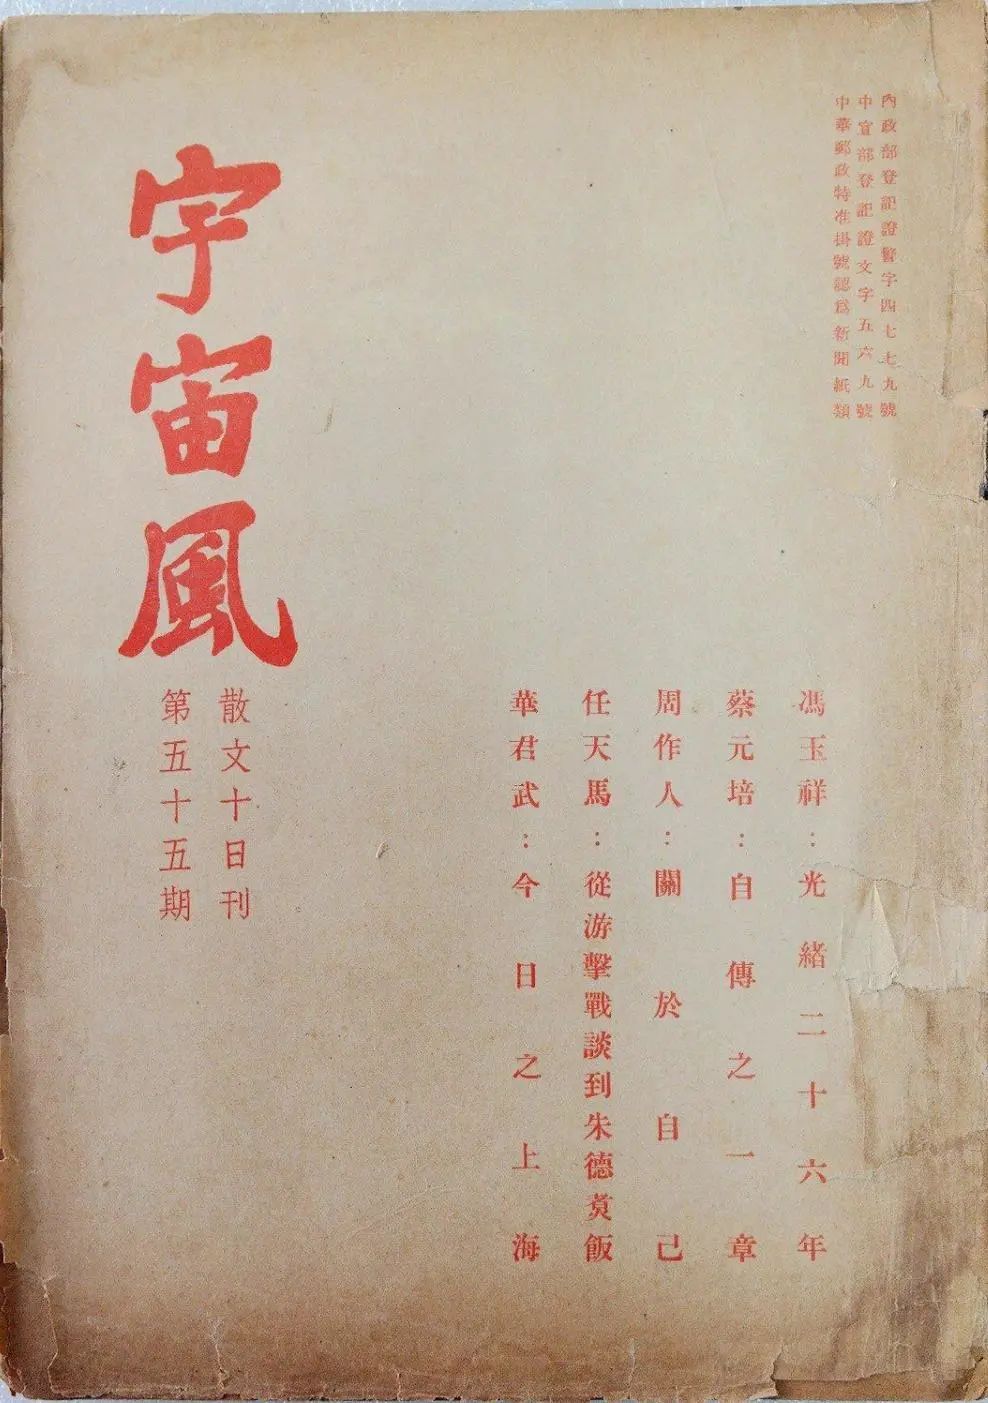 內政部登記證警字四七七九號
中宣部登記證文字五六九號
中華郵政特准掛號認爲新聞紙類
馮玉祥：光緒二十六年
蔡元培：自傳之一章
周作人：關於自己
任天馬：從游擊戰談到朱德煑飯
華君武：今日之上海
宇宙風
散文十日刊
第五十五期